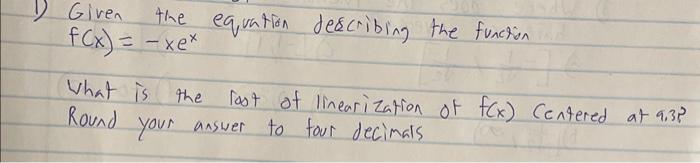 1) Given the equation describing the function
f(x) = -xeˣ
What is the root of linearization of f(x) Centered at 9.3?
Round your answer to four decimals